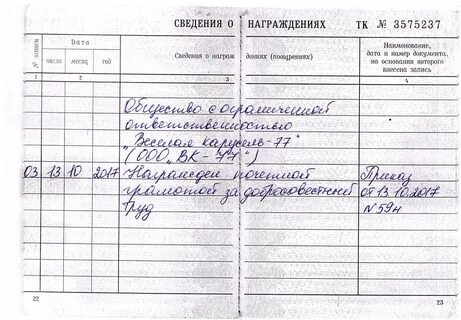 СВЕДЕНИЯ О НАГРАЖДЕНИЯХ ТК № 3575237
№ записи
Дата
число
месяц
год
Сведения о награждениях (поощрениях)
Наименование,
дата и номер документа,
на основании которого
внесена запись
1 2 3 4
Общество с ограниченной
ответственностью
"Веселая карусель-77"
(ООО "ВК-77")
03 13 10 2017 Награжден почетной Приказ
грамотой за добросовестный от 13.10.2017
труд N 59н
22 23